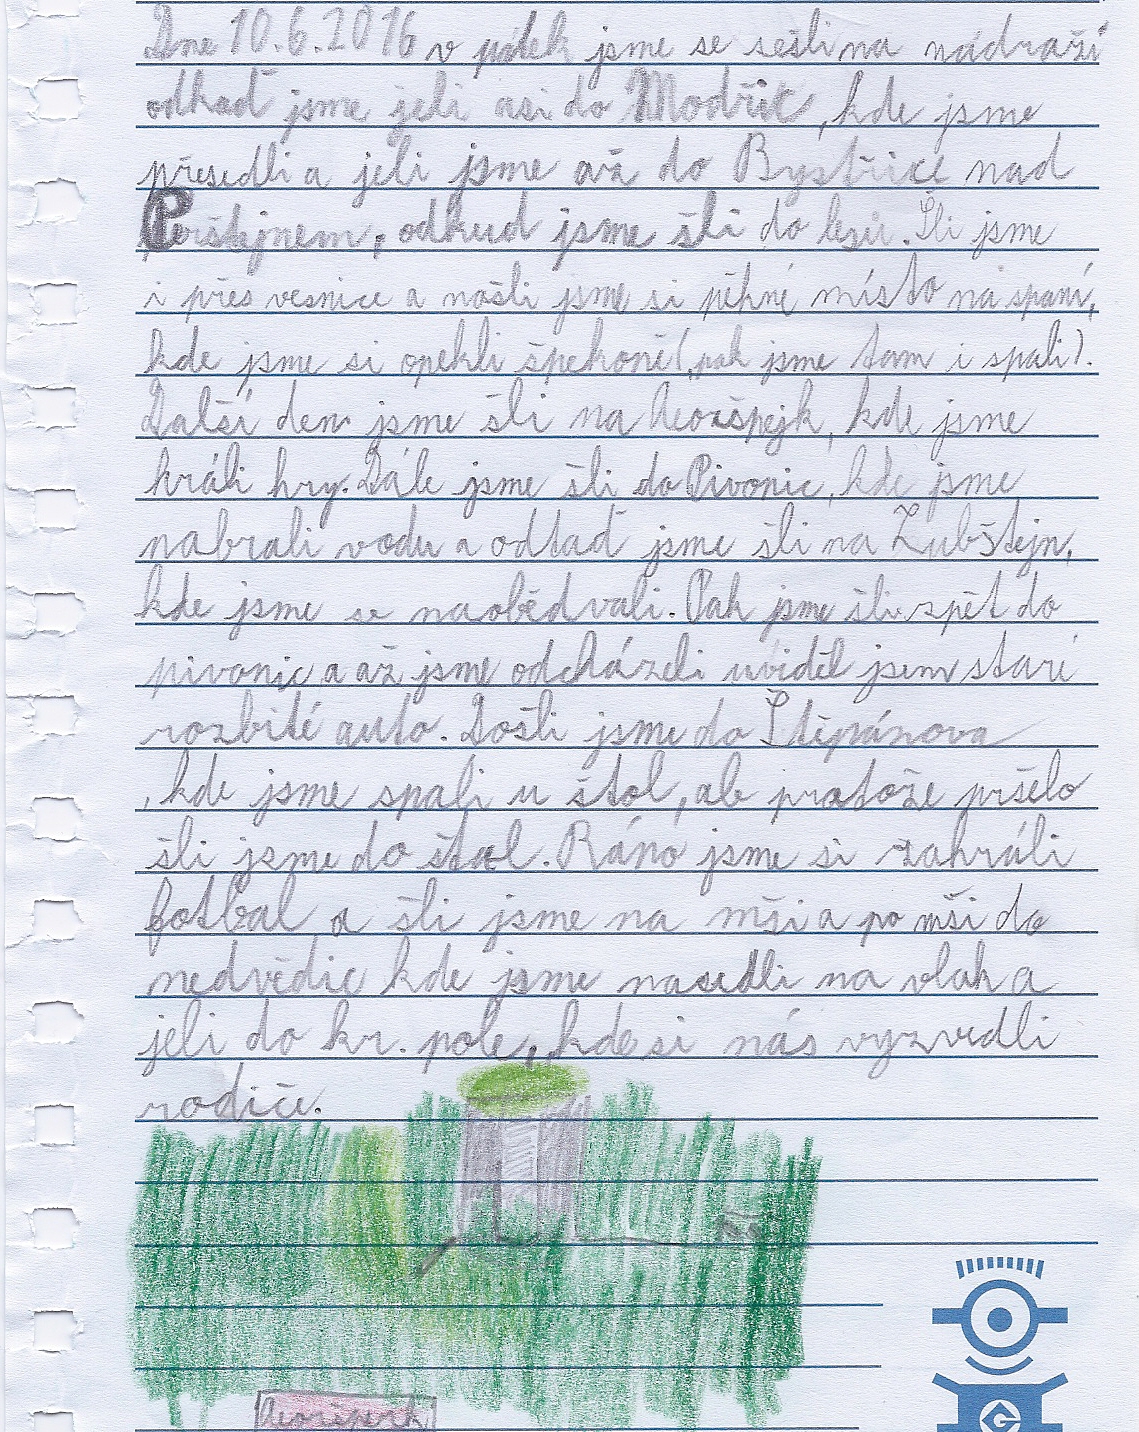 Dne 10.6.2016 v pátek jsme se sešli na nádraží
odkaď jsme jeli asi do Modřic, kde jsme
přesedli a jeli jsme až do Bystřice nad
Perštejnem, odkud jsme šli do lesů. Šli jsme
i přes vesnice a našli jsme si pěkné místo na spaní,
kde jsme si opekli špekoně (pak jsme tam i spali).
Další den jsme šli na kde jsme
hráli hry. Dále jsme šli do Pivonic, kde jsme
nabrali vodu a odtaď jsme šli na Zubštejn,
kde jsme se naobědvali. Pak jsme šli zpět do
pivonic a až jsme odcházeli uviděl jsem staré
rozbité auto. Došli jsme do Štěpánova
, kde jsme spali u štol, ale protože pršelo
šli jsme do štol. Ráno jsme si zahráli
fotbal a šli jsme na mši a po mši do
nedvědic kde jsme nasedli na vlak a
jeli do kr. pole, kde si nás vyzvedli
rodiče.
G